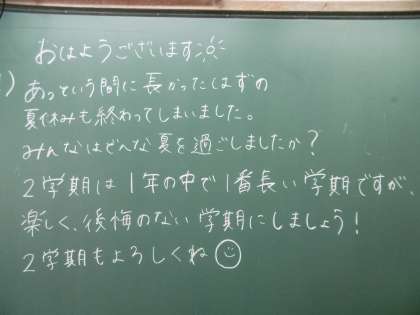 おはようございます
あっという間に長かったはずの
夏休みも終わってしまいました。
みんなはどんな夏を過ごしましたか?
2学期は1年の中で1番長い学期ですが
楽しく、後悔のない学期にしましょう!
2学期もよろしくね